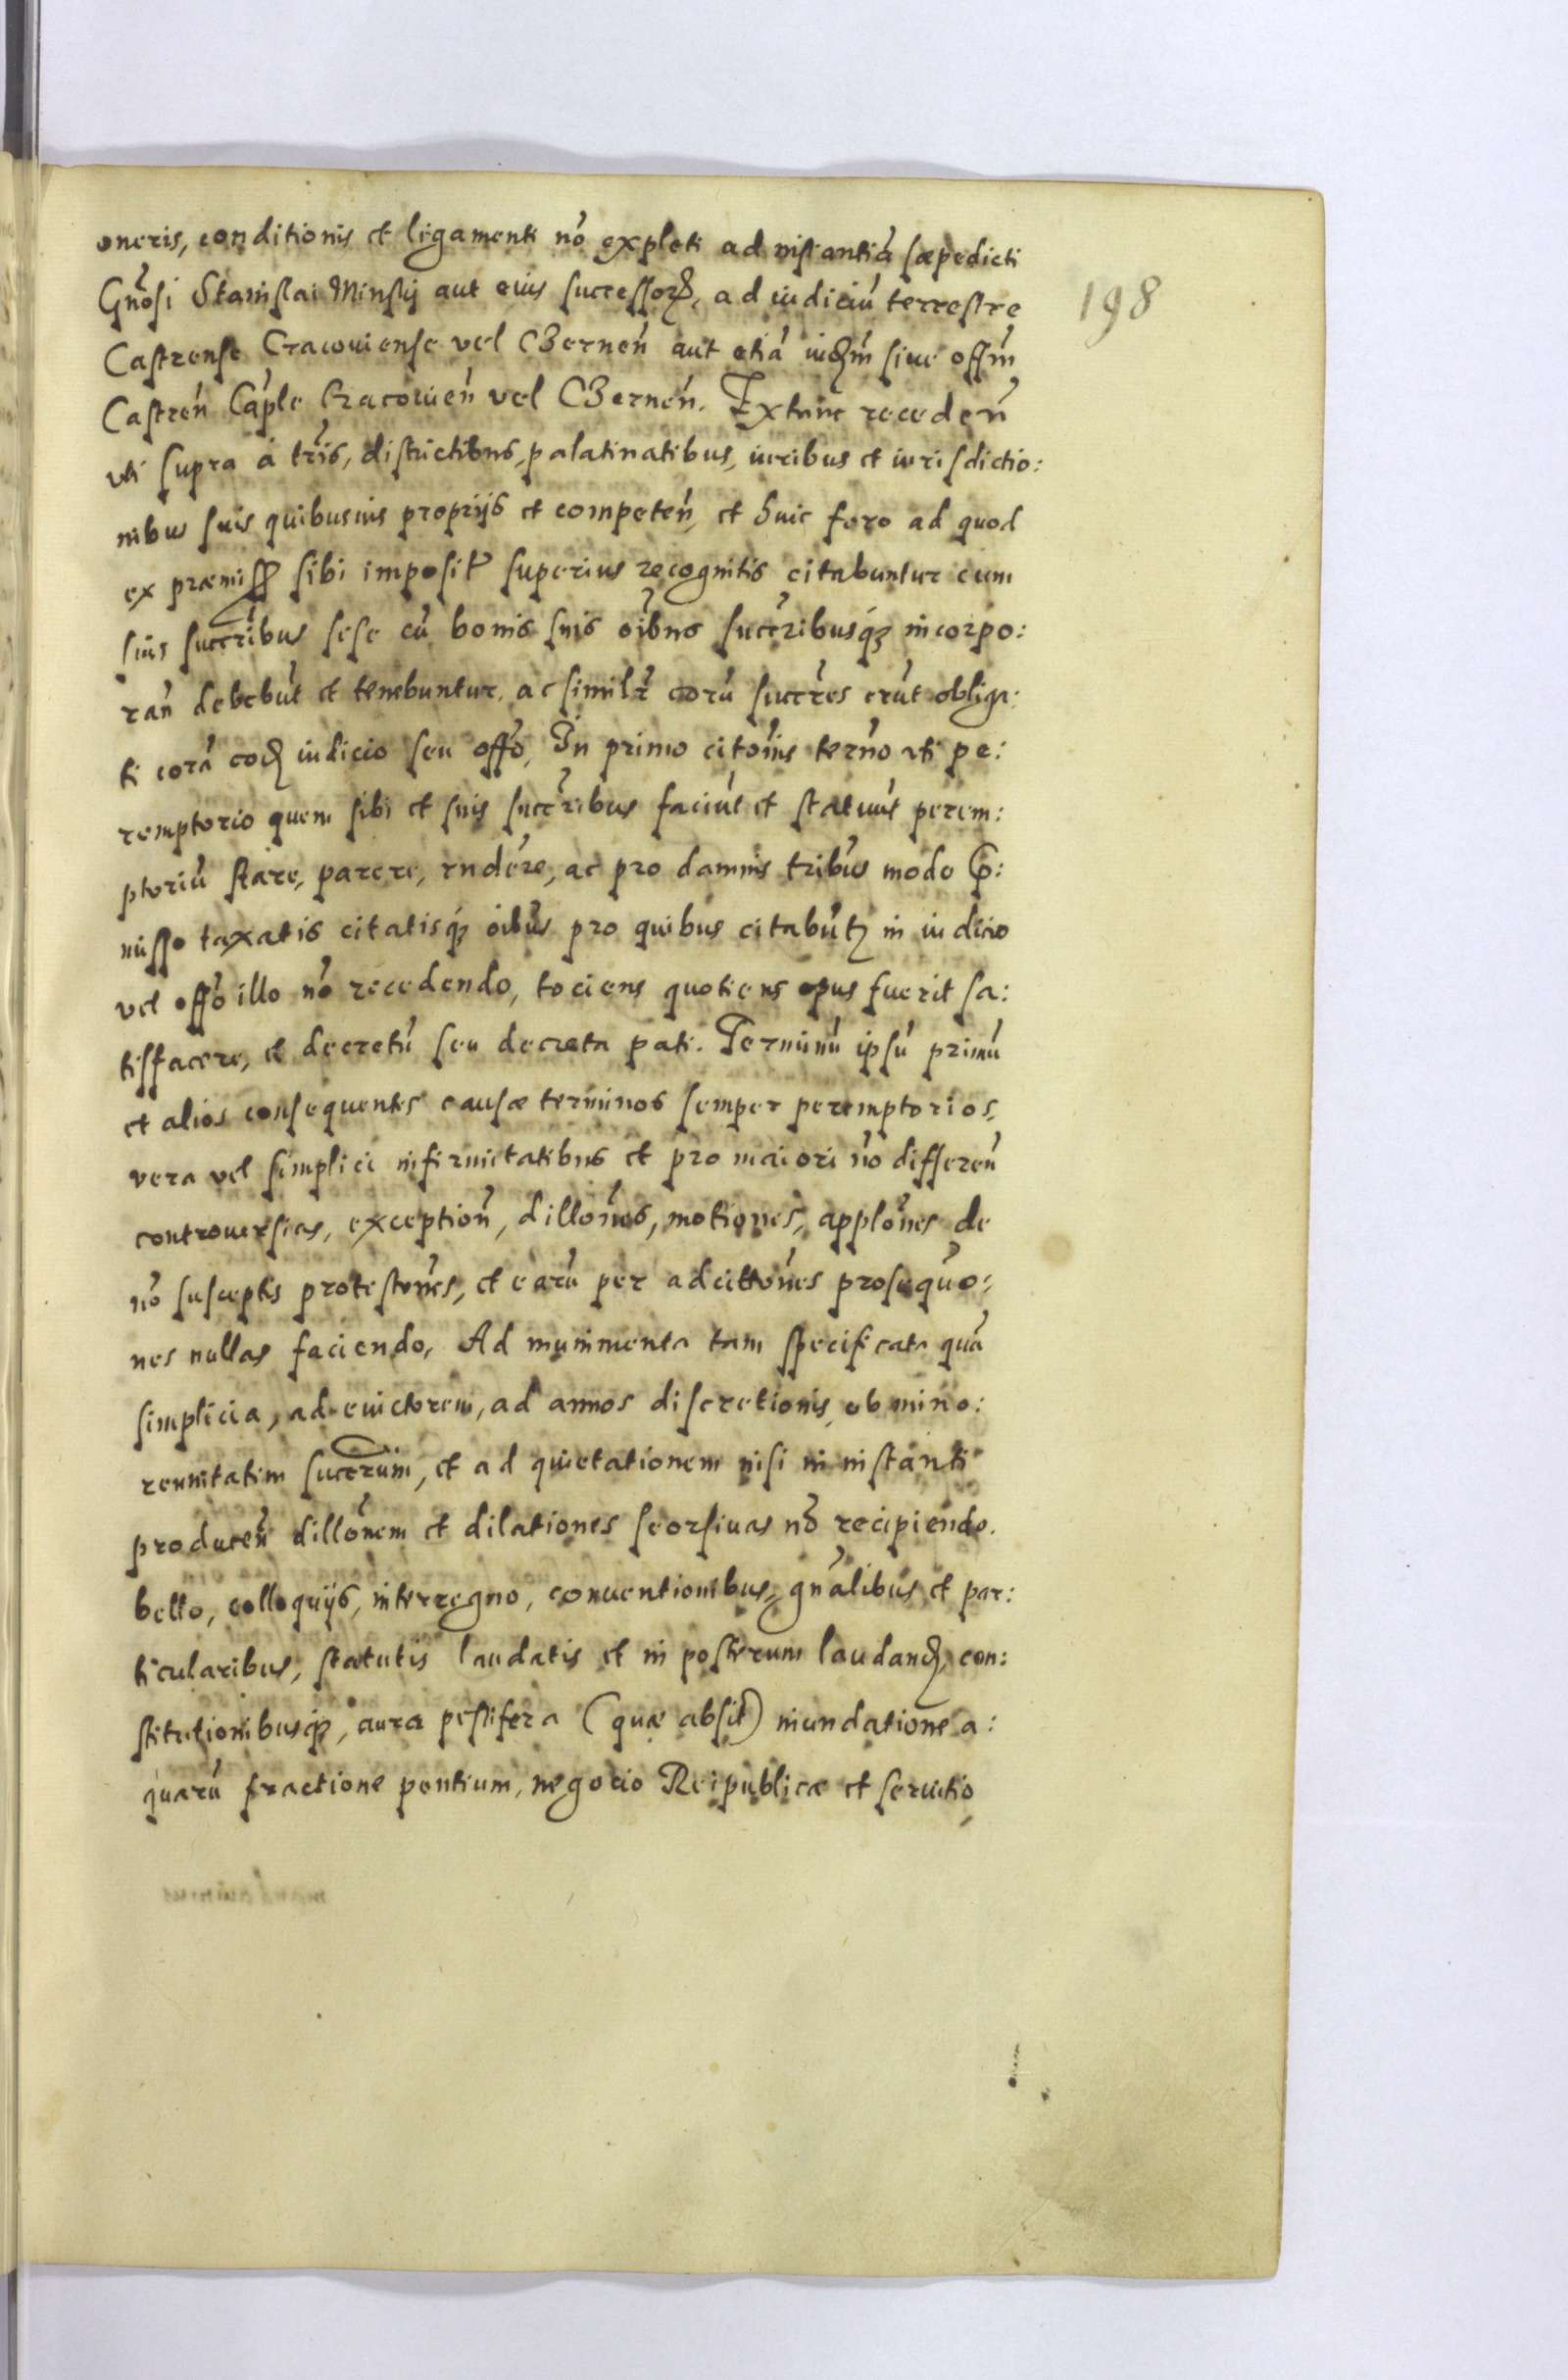 oneris, conditionis et ligamenti nõ expleti ad instantiã sæpedicti
Gnõsi Stanislai Minskij aut eius successorꝝ, ad iudiciũ terrestre
198
Castrense Cracouiense vel CZerneñ aut etiã iudʒm̃ siue offm̃
Castreñ Cap̃le Cracouieñ vel CZerneñ. Extunc recedeñ
vti supra à tr̃is, districtibus, palatinatibus, iuribus et iurisdictio:
nibus suis quibusuis proprijs et competeñ, et huic foro ad quod
ex præmissꝭ sibi imposit̃ superius recognitis citabuntur cum
suis succr̃ibus sese cũ bonis suis oĩbus succr̃ibusqʒ incorpo:
rañ debebũt et tenebuntur, ac similr̃ eorũ succr̃es erũt obliga:
ti corã eodʒ iudicio seu offõ, In primo citõnis ter̃no vti pe:
remptorio quem sibi et suis succr̃ibus faciũt et statuũt perem:
ptoriũ stare, parere, rndẽre, ac pro damnis tribus modo p̱:
misso taxatis citatisqʒ oĩbus pro quibus citabũtʒ in iudicio
vel offõ illo nõ recedendo, tociens quotiens opus fuerit sa:
tisfacere, et decretũ seu decreta pati. Terminũ ipsũ primũ
et alios consequentes causæ terminos semper peremptorios,
vera vel simplici infirmitatibus et pro maiori nõ differeñ
controuersias, exceptioñ, dillões, motiones, applõnes de
nõ susceptis protestõnes, et earũ per adcittõnes prosequõ:
nes nullas faciendo, Ad munimenta tam specificata quã
simplicia, ad euictorem, ad annos discretionis, ob mino:
rennitatim succrum̃, et ad quietationem nisi in instanti
produceñ dillõnem et dilationes seorsiuas nõ recipiendo.
bello, colloquijs, interregno, conuentionibus, gnãlibus et par:
ticularibus, statutis laudatis et in posterum laudandʒ, con:
stitutionibusqʒ, aura pestifera (quæ absit) inundatione a:
quarũ fractione pontium, negocio Reipublicæ et seruitio